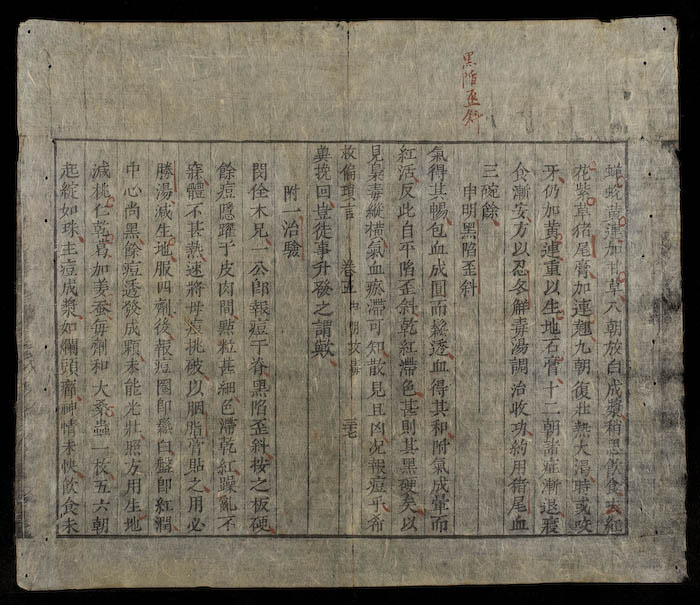 黑陷歪斜
蜉蛇黃連加甘草八朝放白成漿稍思飲食去紅
花紫草猪尾膏加連翹九朝復壯熱大渴時或咬
牙仍加黃連重以生地石膏十二朝諸症漸退寢
食漸安方以忍冬解毒湯調治收功約用猪尾血
三碗餘
申明黑陷歪斜
氣得其暢包血成圓而鬆透血得其和附氣成暈而
紅活反此自平陷歪斜乾紅滯色甚則其黑硬矣以
見梟毒縱橫氣血瘀滯可知散見且凶况報痘乎希
救偏瑣言 卷五
三七
冀挽回豈徒事升發之謂歟
附一治驗
閔佺木兄一公郎報痘于脊黑陷歪斜按之板硬
餘痘隱躍于皮肉間點粒甚細色滯乾紅躁亂不
寐體不甚熱速將母痘挑破以胭脂膏貼之用必
勝湯減生地服四劑後報痘圈即發白盤即紅潤
中心尚黑餘痘透發成顆未能光壯照方用生地
減桃仁乾葛加姜蚕每劑和大桑蟲一枚五六朝
起綻如珠主痘成漿如爛頭齋神情未快飲食未